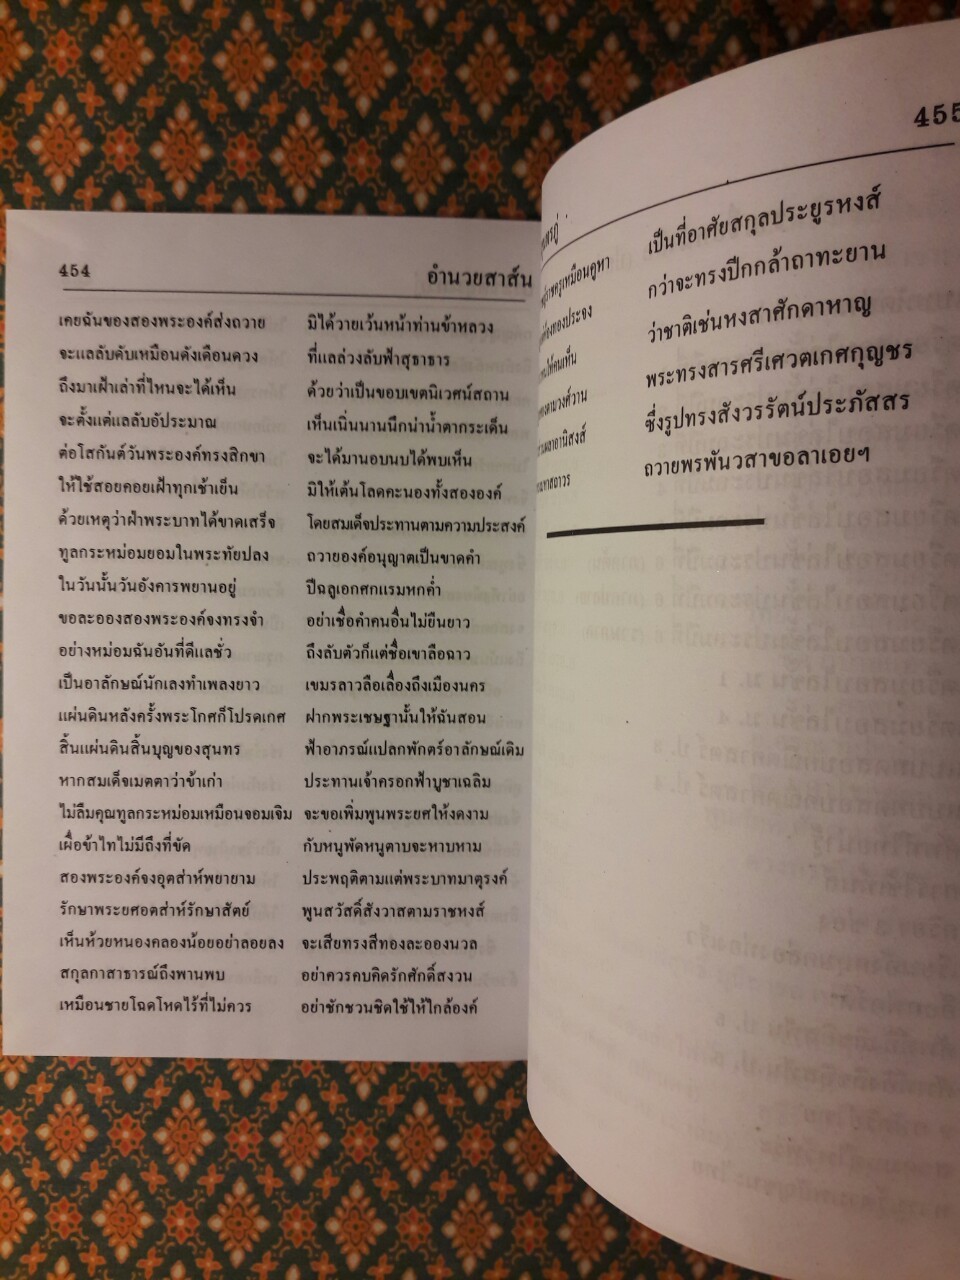 454
อำนวยสาส์น
เคยฉันของสองพระองค์ส่งถวาย มิได้วายเว้นหน้าท่านข้าหลวง
จะแลลับดับเหมือนดังเดือนดวง ที่แลล่วงลับฟ้าสุธาธาร
ถึงมาเฝ้าเล่าที่ไหนจะได้เห็น ด้วยว่าเป็นขอบเขตนิเวศน์สถาน
จะตั้งแต่แลลับอัประมาณ เห็นเนิ่นนานนึกน่าน้ำตากระเด็น
ต่อโสกันต์วันพระองค์ทรงสิกขา จะได้มานอบนบได้พบเห็น
ให้ใช้สอยคอยเฝ้าทุกเช้าเย็น มิให้เต้นโลดคะนองทั้งสององค์
ด้วยเหตุว่าฝ่าพระบาทได้ขาดเสร็จ โดยสมเด็จประทานตามความประสงค์
ทูลกระหม่อมยอมในพระทัยปลง ถวายองค์อนุญาตเป็นขาดคำ
ในวันนั้นวันอังคารพยานอยู่ ปีฉลูเอกศกแรมหกค่ำ
ขอละอองสองพระองค์จงทรงจำ อย่าเชื่อคำคนอื่นไม่ยืนยาว
อย่างหม่อมฉันอันที่ดีแลชั่ว ถึงลับตัวก็แต่ชื่อเขาลือฉาว
เป็นอาลักษณ์นักเลงทำเพลงยาว เขมรลาวลือเลื่องถึงเมืองนคร
แผ่นดินหลังครั้งพระโกศก็โปรดเกศ ฝากพระเชษฐานั้นให้ฉันสอน
สิ้นแผ่นดินสิ้นบุญของสุนทร ฟ้าอาภรณ์แปลกพักตร์อาลักษณ์เดิม
หากสมเด็จเมตตาว่าข้าเก่า ประทานเจ้าครอกฟ้าบูชาเฉลิม
ไม่ลืมคุณทูลกระหม่อมเหมือนจอมเจิม จะขอเพิ่มพูนพระยศให้งดงาม
เผื่อข้าไทไม่มีถึงที่ขัด กับหนูพัดหนูตาบจะหาบหาม
สองพระองค์จงอุตส่าห์พยายาม ประพฤติตามแต่พระบาทมาตุรงค์
รักษาพระยศอตส่าห์รักษาสัตย์ พูนสวัสดิ์สังวาสตามราชหงส์
เห็นห้วยหนองคลองน้อยอย่าลอยลง จะเสียทรงสีทองละอองนวล
สกุลกาสาธารณ์ถึงพานพบ อย่าควรคบคิดรักศักดิ์สงวน
เหมือนชายโฉดโหดไร้ที่ไม่ควร อย่าชักชวนชิดใช้ให้ใกล้องค์
455
ครูเหมือนคูหา เป็นที่อาศัยสกุลประยูรหงส์
ทองประจง กว่าจะทรงปีกกล้าถาทะยาน
ให้คนเห็น ว่าชาติเช่นหงสาศักดาหาญ
วงศ์วาน พระทรงสารศรีเศวตเกศกุญชร
อานิสงส์ ซึ่งรูปทรงสังวรรัตน์ประภัสสร
สถาวร ถวายพรพันวสาขอลาเอยฯ